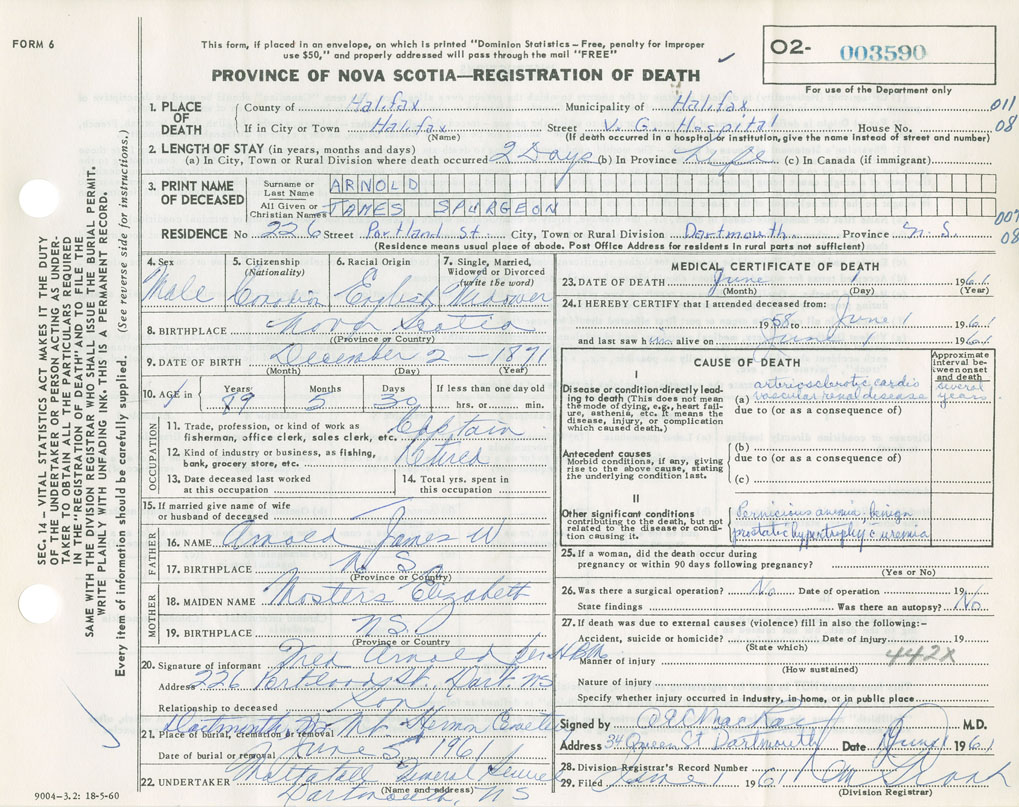 FORM 6
This form, if placed in an envelope, on which is printed "Dominion Statistics – Free, penalty for improper
use $50," and properly addressed will pass through the mail "FREE"
PROVINCE OF NOVA SCOTIA—REGISTRATION OF DEATH
O2- 003590
For use of the Department only
SEC. 14 – VITAL STATISTICS ACT MAKES IT THE DUTY
OF THE UNDERTAKER OR PERSON ACTING AS UNDER-
TAKER TO OBTAIN ALL THE PARTICULARS REQUIRED
IN THE "REGISTRATION OF DEATH" AND TO FILE THE
SAME WITH THE DIVISION REGISTRAR WHO SHALL ISSUE THE BURIAL PERMIT.
WRITE PLAINLY WITH UNFADING INK. THIS IS A PERMANENT RECORD.
Every item of information should be carefully supplied. (See reverse side for instructions.)
1. PLACE OF DEATH
County of Halifax Municipality of Halifax 011
If in City or Town Halifax Street V. G. Hospital House No. 08
(Name) (If death occurred in a hospital or institution, give the name instead of street and number)
2. LENGTH OF STAY (in years, months and days)
(a) In City, Town or Rural Division where death occurred 2 Days (b) In Province Life (c) In Canada (if immigrant)
3. PRINT NAME OF DECEASED
Surname or Last Name ARNOLD
All Given or Christian Names JAMES SPURGEON
RESIDENCE No 226 Street Portland St City, Town or Rural Division Dartmouth Province N. S. 08
(Residence means usual place of abode. Post Office Address for residents in rural parts not sufficient)
4. Sex
Male
5. Citizenship (Nationality)
Canadian
6. Racial Origin
English
7. Single, Married, Widowed or Divorced (write the word)
Widower
8. BIRTHPLACE Nova Scotia
(Province or Country)
9. DATE OF BIRTH December 2 – 1871
(Month) (Day) (Year)
10. AGE in Years 89 Months 5 Days 30 If less than one day old hrs. or min.
OCCUPATION
11. Trade, profession, or kind of work as fisherman, office clerk, sales clerk, etc. Captain
12. Kind of industry or business, as fishing, bank, grocery store, etc. Retired
13. Date deceased last worked at this occupation
14. Total yrs. spent in this occupation
15. If married give name of wife or husband of deceased
FATHER
16. NAME Arnold James W
17. BIRTHPLACE N. S.
(Province or Country)
MOTHER
18. MAIDEN NAME Mosters Elizabeth
19. BIRTHPLACE N.S.
(Province or Country)
20. Signature of informant Fred Arnold
Address 226 Portland St. Dart NS
Relationship to deceased Son
21. Place of burial, cremation or removal Dartmouth NS Mt Hermon Cemetery
Date of burial or removal June 5 1961
22. UNDERTAKER Mattatall Funeral Service
(Name and address)
Dartmouth, NS
9004-3.2: 18-5-60
MEDICAL CERTIFICATE OF DEATH
23. DATE OF DEATH June 1 1961
(Month) (Day) (Year)
24. I HEREBY CERTIFY that I attended deceased from:
1958 to June 1 1961
and last saw him alive on June 1 1961
CAUSE OF DEATH
Approximate interval between onset and death
I
Disease or condition directly leading to death (This does not mean the mode of dying, e.g., heart failure, asthenia, etc. It means the disease, injury, or complication which caused death.)
(a) arteriosclerotic cardio vascular renal disease several years
due to (or as a consequence of)
Antecedent causes
Morbid conditions, if any, giving rise to the above cause, stating the underlying condition last.
(b)
due to (or as a consequence of)
(c)
II
Other significant conditions contributing to the death, but not related to the disease or condition causing it.
Pernicious anemia, benign
prostatic hypertrophy c̄ uremia
25. If a woman, did the death occur during
pregnancy or within 90 days following pregnancy?
(Yes or No)
26. Was there a surgical operation? No Date of operation 19
State findings Was there an autopsy? No
27. If death was due to external causes (violence) fill in also the following:–
Accident, suicide or homicide? Date of injury 19
(State which) 442X
Manner of injury
(How sustained)
Nature of injury
Specify whether injury occurred in industry, in home, or in public place
Signed by MacKay M.D.
Address 34 Queen St Dartmouth Date June 1 1961
28. Division Registrar's Record Number
29. Filed June 1 1961
(Division Registrar)